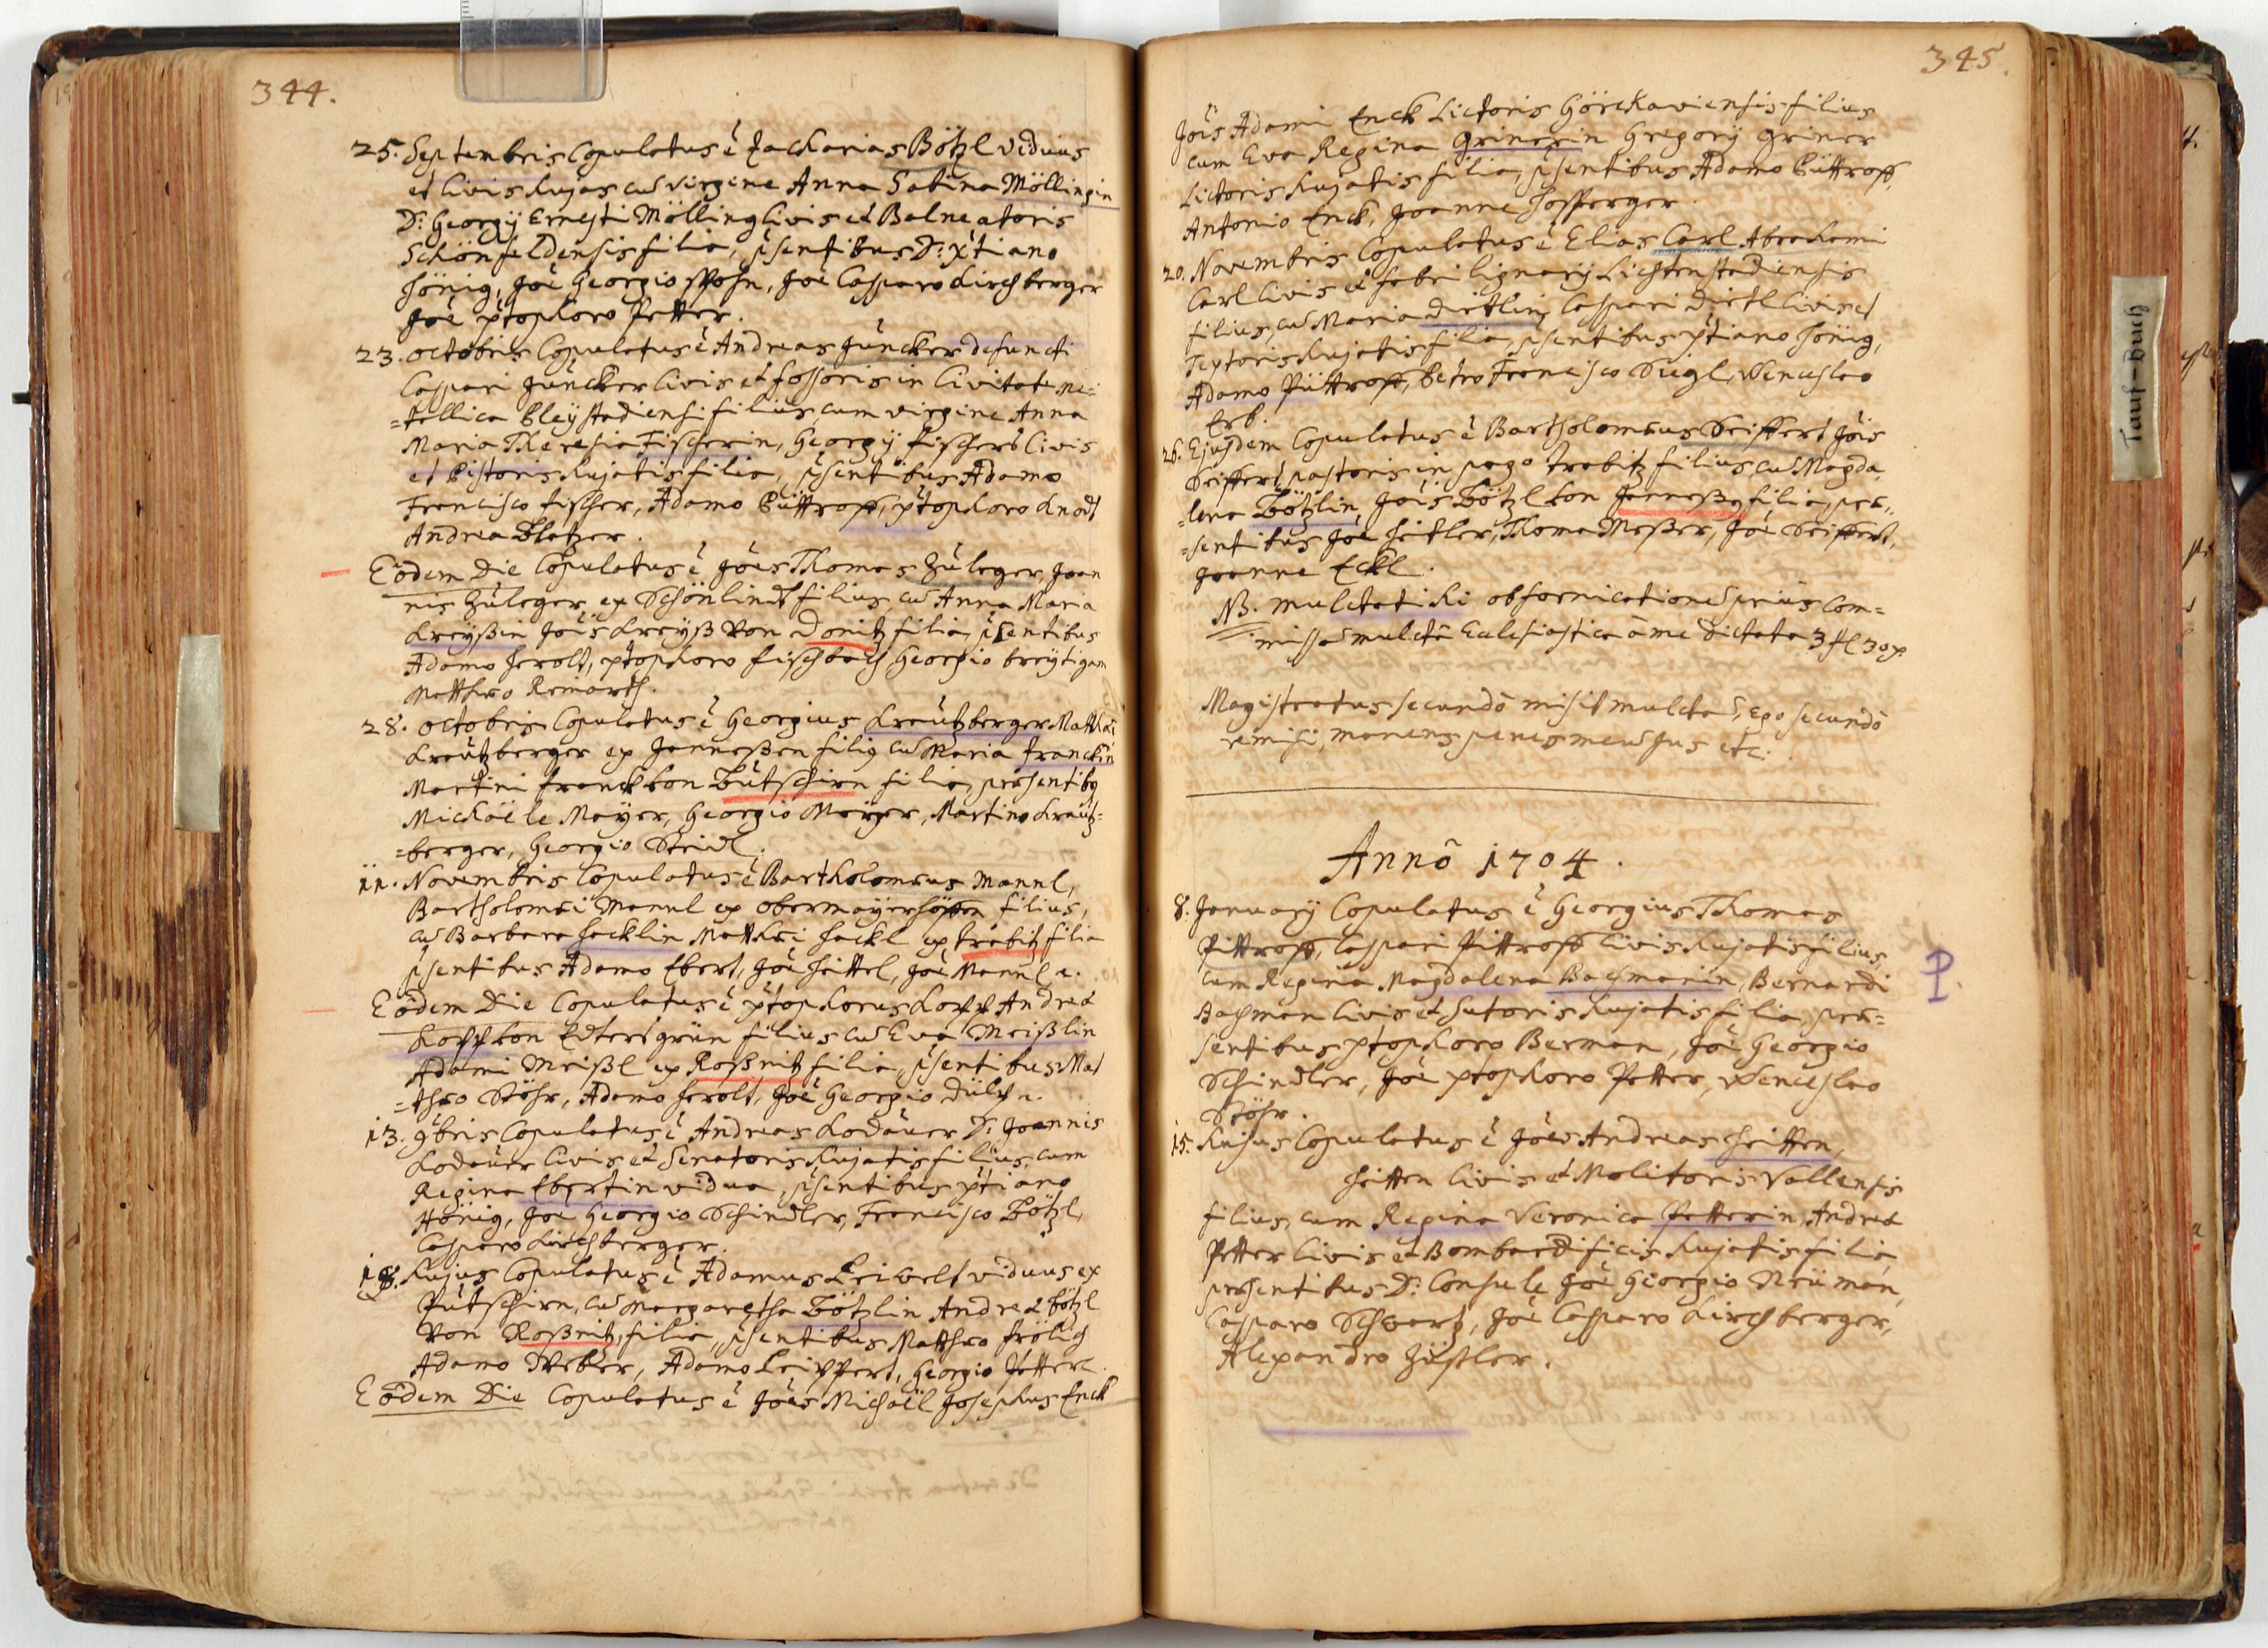 344.
25. Septembris Copulatus ē Zacharias Bötzl viduus
et Civis hujas cū virgine Anna Sabina Möllingin
D: Georgÿ Ernesti Mölling Civis et Balneatoris
Schönfeldensis filia, psentibus D: Xtiano
Hönig, Joē Georgio, Joē Casparo Kirchberger
Joē Xtophoro Petter.
23. Octobris Copulatus ē Andreas Juncker defuncti
Caspari Juncker Civis et fossoris in Civitate Me=
=tallica Bleÿstadiensi filius, cum virgine Anna
Maria Theresia Fischerin, Georgÿ Fischers Civis
et Pistoris hujatis filia, psentibus Adamo
Francisco Fischer, Adamo Püttropff, Xtophoro Knodt
Andrea Blatzer.
Eōdem Die Copulatus ē Joēs Thomas Züleger, Joan
nis Züleger ex Schönlindt filius, cū Anna Maria
Kreÿßin Jōis Kreÿß von Donitz filia, psentibus
Adamo Herolt, Xtophoro Fischbach Georgio breÿtigam
Matthæo Reinarth.
28. Octobris Copulatus ē Georgius Kreützberger Matthæi
Kreützberger ex Janneßen filiꝰ cū Maria Franckin
Martini Franck von Bütschirn filia, præsentibꝰ
Michaële Maÿer, Georgio Maÿer, Martino Kreütz=
=berger, Georgio Steidl.
11. Novembris Copulatus ē Bartholomæus Mannl,
Bartholomæi Mannl ex Obermaÿerhöffen filius,
cū Barbara Hacklin Matthæi Hackl ex Trabitz filia
psentibus Adamo Ebert, Joē Heittel, Joē Mannl ꝛ.
Eōdem Die Copulatus ē Xtophorus Kopp Andreæ
Kopp von Edtersgrün filius cū Eva Meißlin
Adami Meißl ex Roßnitz filia, psentibus Mat
=thæo Stöhr, Adamo Herolt, Joē Georgio Dülch ꝛ.
13. 9bris Copulatus ē Andreas Kodauer D: Joannis
Kodauer Civis et Senatoris hujatis filius, cum
Regina Ebertin vidua, psentibus Xtiano
Hönig, Joē Georgio Schindler, Francisco Bötzl,
Casparo Kirchberger.
18. hujus Copulatus ē Adamus Leiwelt viduus ex
Pütschirn, cū Margaretha Bötzlin Andreæ Bötzl
von Roßnitz, filia, psentibus Matthæo Frölich
Adamo Weber, Adamo Leippert, Georgio Petter ꝛ.
Eōdem Die Copulatus ē Joēs Michaël Josephus Enck
345.
Jōis Adami Enck Lictoris Görckaviensis filius
cum Eva Regina Grinerin Gregorÿ Griner
Lictoris hujatis filia, psentibus Adamo Püttropff,
Antonio Enck, Joanne Hossperger.
20. Novembris Copulatus ē Elias Carl Abrahami
Carl Civis et fabri lignarÿ Lichtenstadiensis
filius, cū Maria Dietlin, Caspari Dietl Civis et
Textoris hujatis filia, psentibus Xtiano Hönig,
Adamo Püttropff, Petro Francisco Siegl, Wenceslao
Erb.
26. Ejusdem Copulatus ē Bartholomæus Seiffert Jōis
Seiffert pastoris in pago Trabitz filius cū Magda,
=lena Bötzlin, Jōis Bötzl von Janneßen filia, præ=
=sentibus Joē Heitler, Thoma Meßer, Joē Seiffert,
Joanne Eckl.
NB. Mulctati hi ob fornicationē prius Com=
=missā mulctā Eclesiastica â me Dictata 3 fl 30 x.
Magistratus secundō misit mulctā, Ego secundō
remisi, manens penes meū Jus etc.
Annō 1704.
8. Januarÿ Copulatus ē Georgius Thomas
Pittropff, Caspari Pittropff Civis hujatis filius
cum Regina Magdalena Bachmanin, Bernardi
Bachman Civis et Sutoris hujatis filia, præ=
sentibus Xtophoro Berman, Joē Georgio
Schindler, Joē Xtophoro Petter, Wenceslao
Stöhr.
P.
15. hujus Copulatus ē Joēs Andreas Heitten,
Heitten Civis et Molitoris Vallensis
filius, cum Regina Veronica Petterin, Andreæ
Petter Civis et Bombardificis hujatis filia,
præsentibus D: Consule Joē Georgio Neüman,
Casparo Schwartz, Joē Casparo Kirchberger,
Alexandro Züstler.
Tauf-Buch